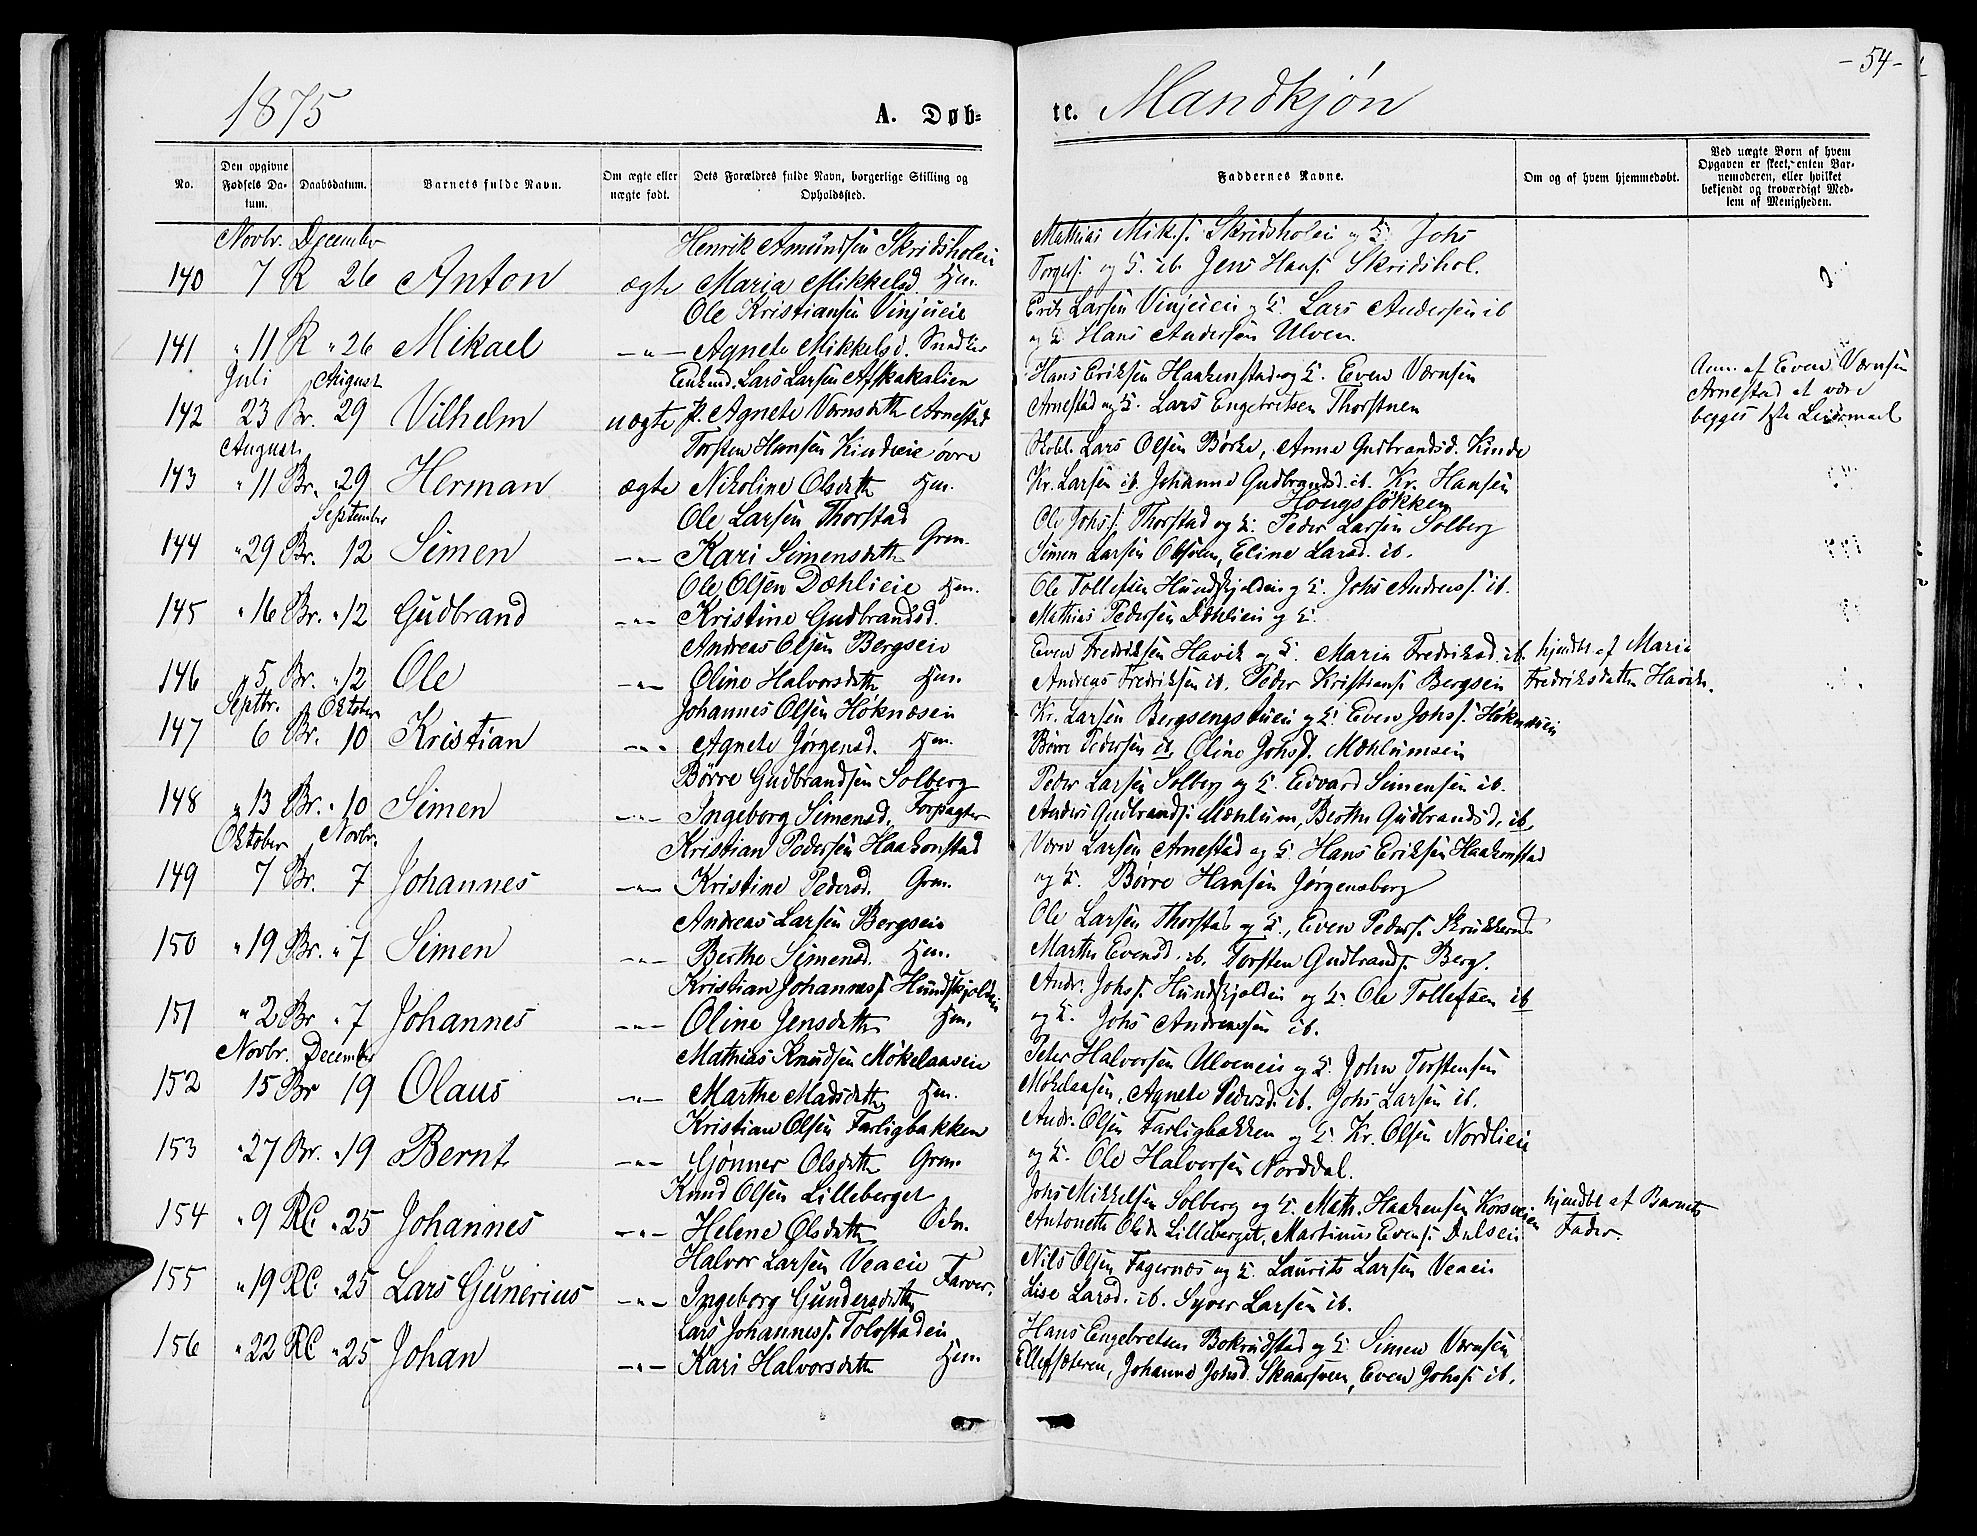 - 54 -
1875
A. Døb=
te. Mandkjøn
No.
Den opgivne Fødsels Da-tum.
Daabsdatum.
Barnets fulde Navn.
Om ægte eller uægte født.
Dets Forældres fulde Navn, borgerlige Stilling og Opholdssted.
Faddernes Navne.
Om og af hvem hjemmedøbt.
Ved uægte Børn af hvem Opgaven er skeet, enten Bar-nemoderen, eller hvilket bekjendt og troværdigt Med-lem af Menigheden.
Novbr. December
Henrik Amundsen Skridsholeie
140 7 R 26 Anton ægte Maria Mikkelsd. Hjm.
Mathias Mik.s. Skridsholeie og H. Johs
Torgers. og H. ib. Jens Hans. Skridshol.
Ole Kristiansen Vinjeieie
141 " 11 R " 26 Mikael -"- Agnete Mikkelsd. Snedker
Erik Larsen Vinjeieie og H. Lars Andersen ib
og H. Hans Andersen Ulven.
Juli August
Enkmd. Lars Larsen Afskakalien
142 23 Br. 29 Vilhelm uægte p. Agnete Vernsdatter Arnestad
Hans Eriksen Haakenstad og H. Even Vernsen
Arnestad og H. Lars Engebretsen Thorstuen
Anm. af Even Vernsen
Arnestad at være
begges 1ste Leiermaal
August
Torsten Hansen Kindseie øvre
143 " 11 Br. " 29 Herman ægte Nikoline Olsdatter Hjm.
Skobl. Lars Olsen Børke, Anne Gudbrandsd. Kinde
Kr. Larsen ib. Johanne Gudbrandsd. ib. Kr. Hansen
Hougsløkken
September
Ole Larsen Thorstad
144 " 29 Br. 12 Simen -"- Kari Simensdatter Grm.
Ole Johs. Thorstad og H. Peder Larsen Solberg
Simen Larsen Olsven, Eline Larsd. ib.
Ole Olsen Dæhlieie Hjm.
145 " 16 Br. " 12 Gudbrand -"- Kristine Gudbrandsd.
Ole Tollefsen Hundskjoldeie og H. Johs Andreass. ib.
Mathias Pedersen Dæhlieie og H.
Andreas Olsen Bergseie
146 " 5 Br. " 12 Ole -"- Oline Halvorsdatter Hjm.
Even Fredriksen Havik og H. Maria Fredriksd. ib.
Andreas Fredriksen ib. Peder Kristians. Bergseie
hjmdbt af Maria
Fredriksdatter Havik.
Septbr. Oktober
Johannes Olsen Høknæseie
147 6 Br. 10 Kristian -"- Agnete Jørgensd. Hjm.
Kr. Larsen Bergsengstuen og H. Even Johs. Høknæseie
Børre Pedersen ib. Oline Johsd. Mæhlumseie
Børre Gudbrandsen Solberg
148 " 13 Br. " 10 Simen -"- Ingeborg Simensd. Forpagter
Peder Larsen Solberg og H. Edvard Simensen ib.
Anders Gudbrands. Mæhlum, Berthe Gudbrandsd. ib.
Oktober Novbr.
Kristian Pedersen Haakenstad
149 7 Br. 7 Johannes -"- Kristine Pedersd. Grm.
Vern Larsen Arnestad og H. Hans Eriksen Haakenstad
og H. Børre Hansen Jørgensberg
Andreas Larsen Bergseie
150 " 19 Br. " 7 Simen -"- Berthe Simensd. Hjm.
Ole Larsen Thorstad og H., Even Peders. Skrukkerud
Marthe Evensd. ib. Torsten Gudbrands. Berg.
Kristian Johanness. Hundskjoldeie
151 " 2 Br " 7 Johannes -"- Oline Jensdatter Hjm.
Andr. Johs. Hundskjoldeie og H. Ole Tollefsen ib
og H. Johs Andreassen ib.
Novbr. December
Mathias Knudsen Møkelaaseie
152 15 Br 19 Olaus -"- Marthe Madsdatter Hjm.
Peter Halvorsen Ulveneie og H. John Torstensen
Møkelaasen, Agnete Pedersd. ib. Johs Larsen ib.
Kristian Olsen Farligbakken
153 " 27 Br. " 19 Bernt -"- Gjønner Olsdatter Grm.
Andr. Olsen Farligbakken og H. Kr. Olsen Nordlieie
og H. Ole Halvorsen Norddal.
Knud Olsen Lilleberget
154 " 9 RC. " 25 Johannes -"- Helene Olsdatter Selv.
Johs Mikkelsen Solberg og H. Math. Haakensen Korsveien
Antonette Olsd. Lilleberget, Martinus Evens. Dulseie
hjmdbt af Barnets
Fader.
Halvor Larsen Veaeie
155 " 19 RC. " 25 Lars Gunerius -"- Ingeborg Gundersdatter Farver.
Nils Olsen Fagernæs og H. Laurits Larsen Veaeie
Lise Larsd. ib. Syver Larsen ib.
Lars Johanness. Tolostadeie
156 " 22 RC " 25 Johan -"- Kari Halvorsdatter Hjm
Hans Engebretsen Bokrudstad og H. Simen Vernsen
Ellefsæteren, Johanne Johsd. Skaarsveen, Even Johs. ib.